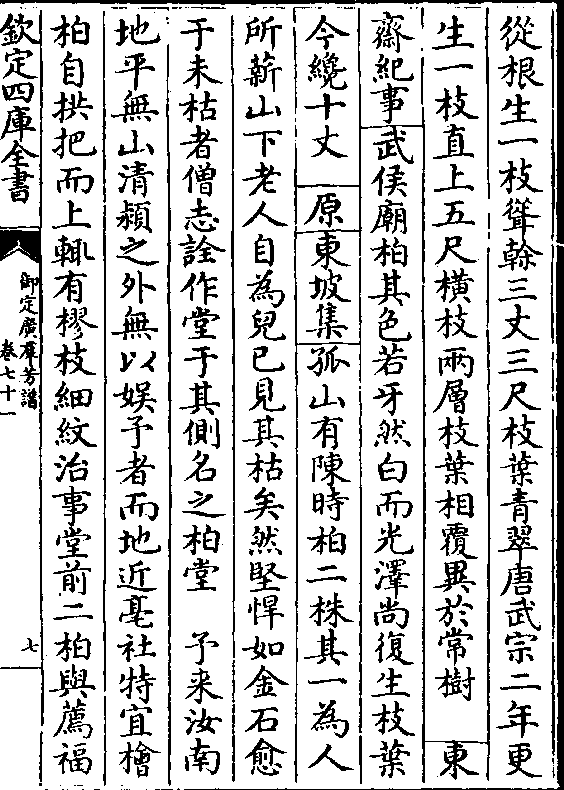 從根生一枝聳榦三丈三尺枝葉青翠唐武宗二年更
生一枝直上五尺橫枝兩層枝葉相覆異於常樹　東
齋紀事武侯廟柏其色若牙然白而光澤尚復生枝葉
今纔十丈　原東坡集孤山有陳時柏二株其一為人
所薪山下老人自為兒已見其枯矣然堅悍如金石愈
于未枯者僧志詮作堂于其側名之柏堂　予來汝南
地平無山清潁之外無以娛予者而地近亳社特宜檜
柏自拱把而上輒有樛枝細紋治事堂前二柏與薦福
欽定四庫全書
御定廣羣芳譜
卷七十一
七